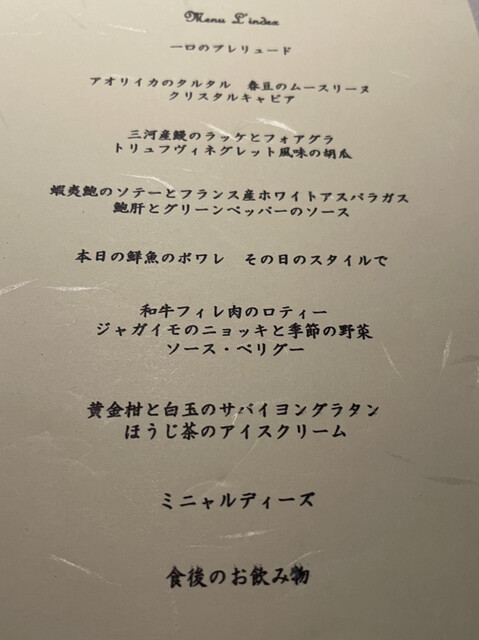 Menu L'index
一口のプレリュード
アオリイカのタルタル　春豆のムースリーヌ
クリスタルキャビア
三河産鰻のラッケとフォアグラ
トリュフヴィネグレット風味の胡瓜
蝦夷鮑のソテーとフランス産ホワイトアスパラガス
鮑肝とグリーンペッパーのソース
本日の鮮魚のポワレ　その日のスタイルで
和牛フィレ肉のロティー
ジャガイモのニョッキと季節の野菜
ソース・ペリグー
黄金柑と白玉のサバイヨングラタン
ほうじ茶のアイスクリーム
ミニャルディーズ
食後のお飲み物